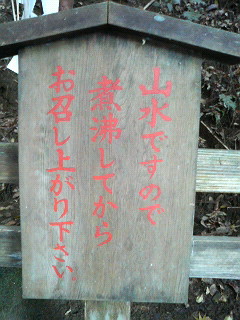 山水ですので
煮沸してから
お召し上がり下さい